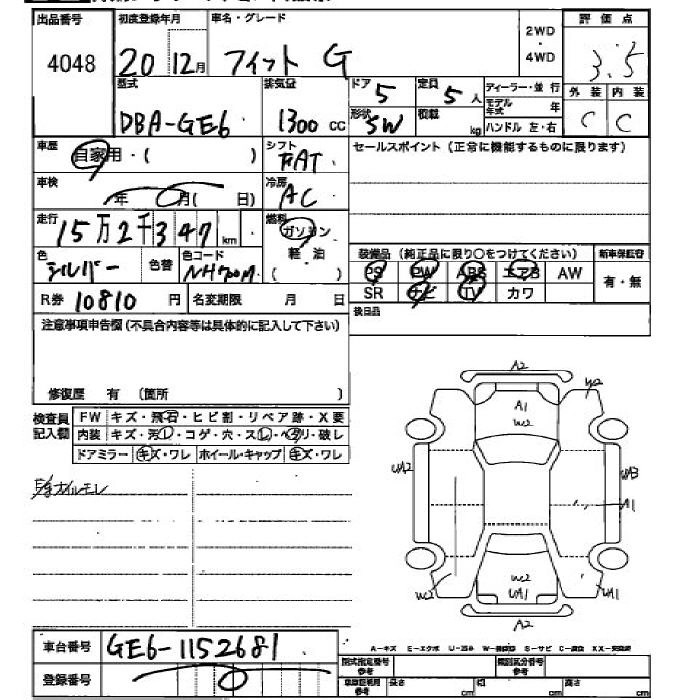 出品番号 初度登録年月 車名・グレード 評価点
4048 20 12月 フィット G 2WD・4WD 3.5
型式 排気量 ドア 5 定員 5人 ディーラー・並行 外装 内装
DBA-GE6 1300cc 形状 SW 積載 kg モデル年式 年 C C
ハンドル 左・右
車歴 自家用・( ) シフト FAT セールスポイント(正常に機能するものに限ります)
車検 年 月( 日) 冷房 AC
走行 15万2千347km 燃料 ガソリン
軽油
( )
色 シルバー 色替 色コード NH700M
装備品(純正品に限り○をつけてください) 新車保証書
PS PW ABS エアB AW 有・無
SR ナビ TV カワ
R券 10810円 名変期限 月 日
後日品
注意事項申告欄(不具合内容等は具体的に記入して下さい)
修復歴 有 (箇所 )
検査員記入欄 FW キズ・飛石・ヒビ割・リペア跡・X要
内装 キズ・汚レ・コゲ・穴・スレ・ヘタリ・破レ
ドアミラー キズ・ワレ ホイール・キャップ キズ・ワレ
オイルモレ
A2
A1
W2
W2
UA2
UA3
A1
W2
W2
UA1
UA1
A2
車台番号 GE6-1152681
登録番号
A-キズ E-エクボ U-凹み S-サビ C-腐食
型式指定番号 参考 類別区分番号 参考
長さ cm 巾 cm 高さ cm